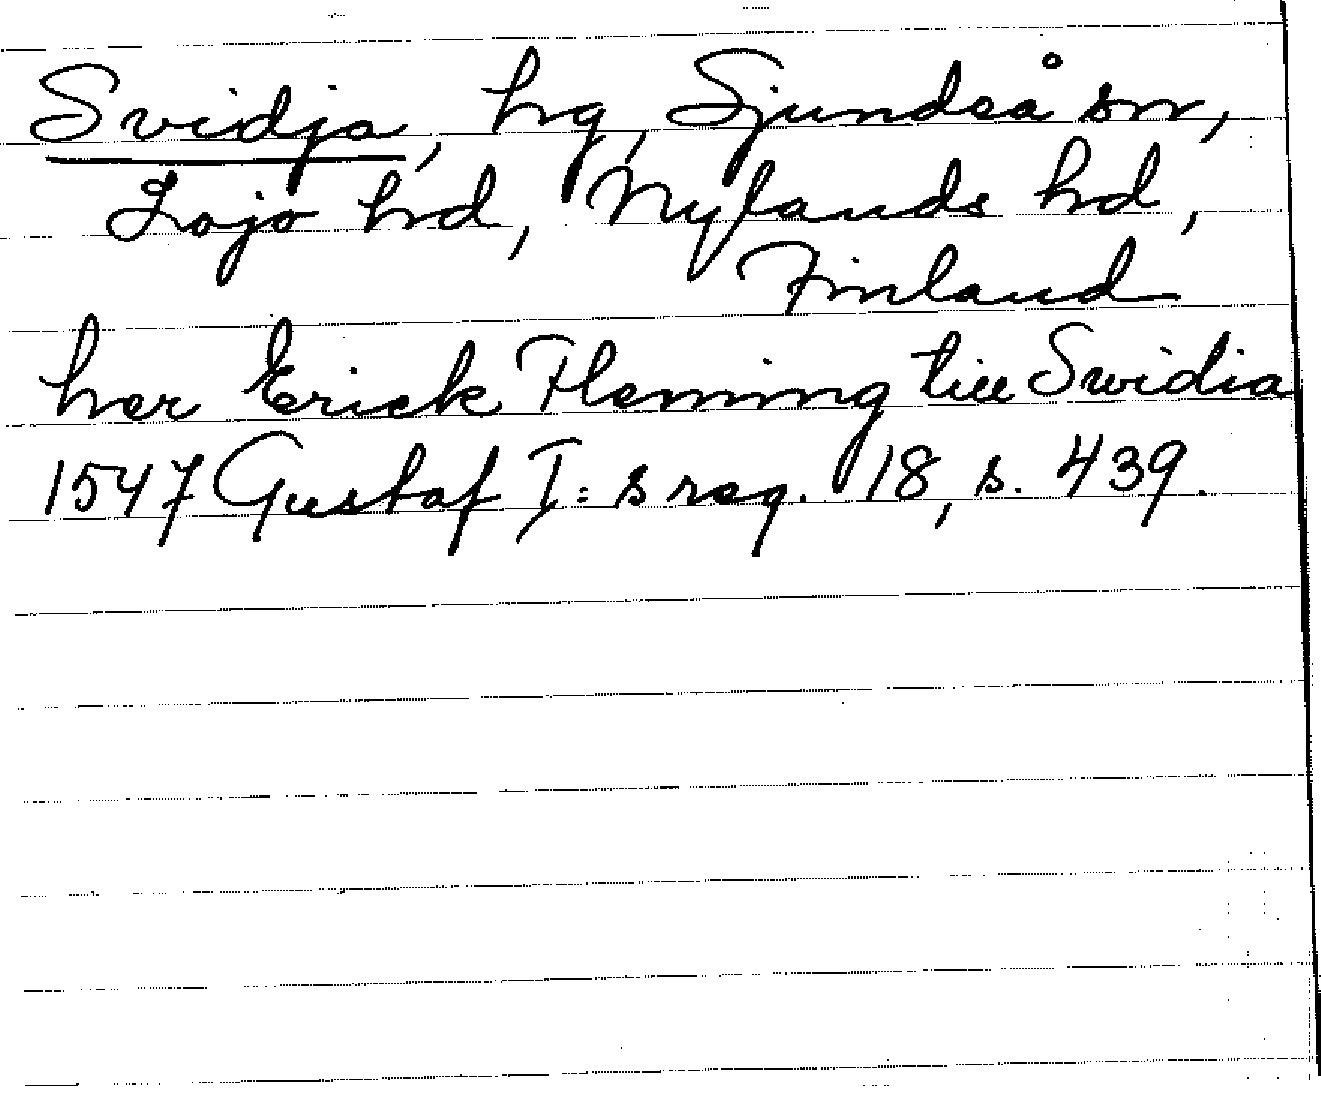 Svidja, hg, Sjundeå sn,
Lojo hrd, Nylands hd,
Finland
her Erick Fleming till Swidia
1547 Gustaf I:s reg. 18, s. 439.